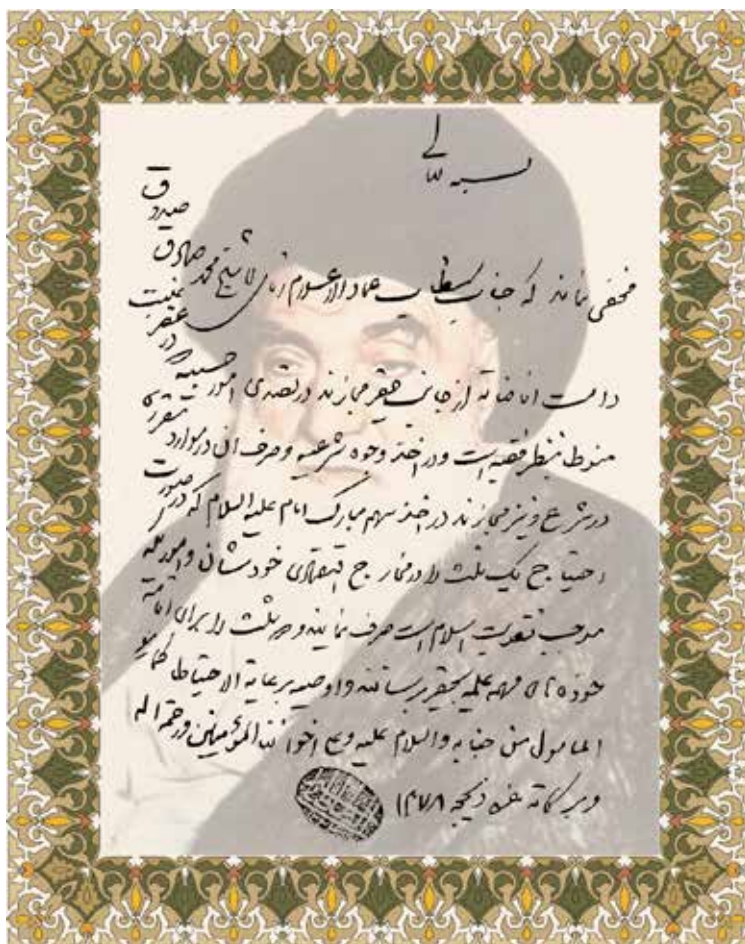 بسمه تعالی
مخفی نماند که جناب مستطاب عماد الاعلام آقای آقا شیخ محمد صادق صیدی
دامت افاضاته از جانب حقیر مجازند در تصدی امور حسبیه در عصر غیبت
منوط بنظر فقیه است و در اخذ وجوه شرعیه و صرف آن در موارد مقرره
در شرع و نیز مجازند در اخذ سهم مبارک امام علیه السلام که در صورت
احتیاج یک ثلث را در مخارج اقتصادی خودشان و امور که
موجب تقویت اسلام است صرف نمایند و دو ثلث را برای اقامة
حوزه های مهمه علمیه بحقیر برسانند و اوصیه برعایة الاحتیاط کما هو
المامول من جنابه والسلام علیه و علی اخواننا المؤمنین و رحمة الله
و برکاته غره ذیحجه